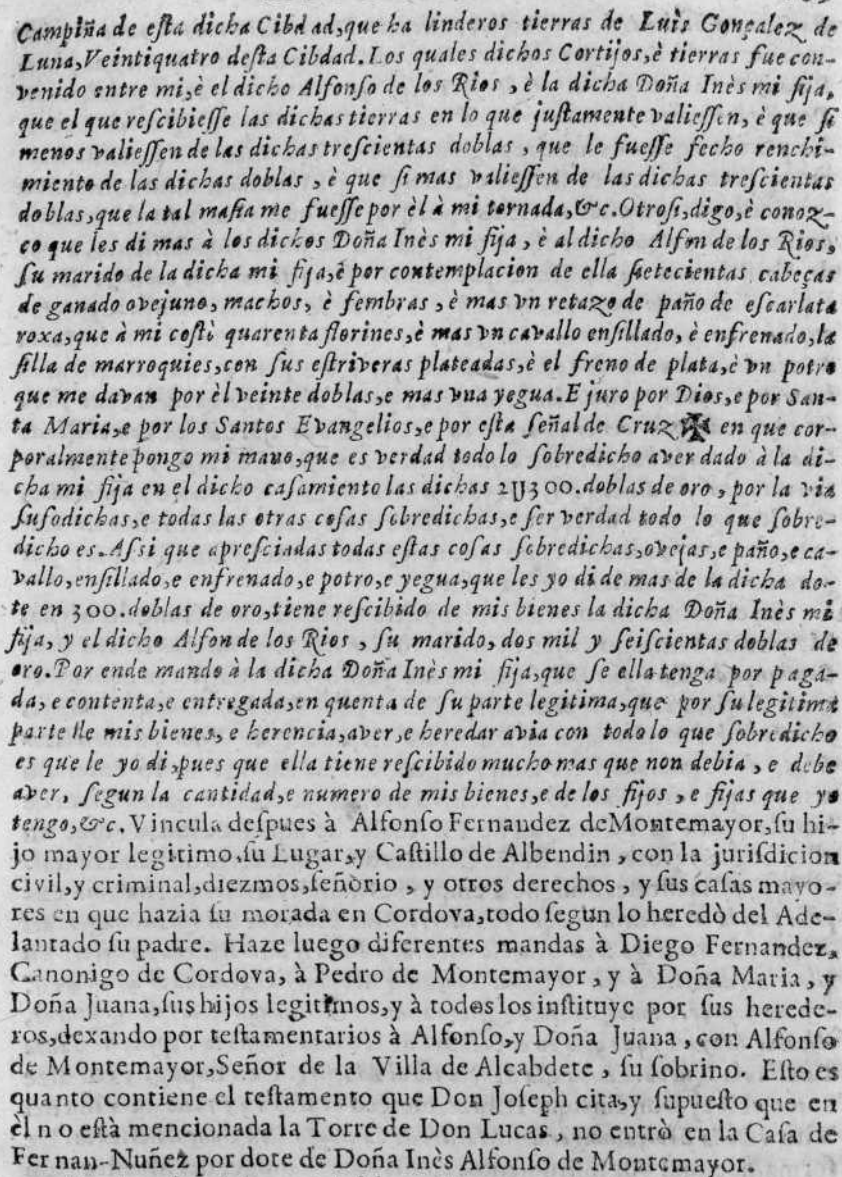 Campiña de eſta dicha Cibdad,que ha linderos tierras de Luis Gonçalez de
Luna,Veintiquatro deſta Cibdad.Los quales dichos Cortijos,è tierras fue con-
venido entre mi,è el dicho Alfonſo de los Rios , è la dicha Doña Inès mi fija,
que el que reſcibieſſe las dichas tierras en lo que juſtamente valieſſen, è que ſi
menos valieſſen de las dichas treſcientas doblas , que le fueſſe fecho renchi-
miento de las dichas doblas , è que ſi mas valieſſen de las dichas treſcientas
doblas,que la tal maſia me fueſſe por èl à mi tornada,&c.Otroſi,digo,è conoz-
co que les di mas à los dichos Doña Inès mi fija , è al dicho Alfon de los Rios,
ſu marido de la dicha mi fija,è por contemplacion de ella ſietecientas cabeças
de ganado ovejuno, machos, è fembras , è mas vn retazo de paño de eſcarlata
roxa,que à mi coſtò quarenta florines,è mas vn cavallo enſillado, è enfrenado,la
ſilla de marroquies,con ſus eſtriveras plateadas,è el freno de plata,è vn potro
que me davan por èl veinte doblas,e mas vna yegua.E juro por Dios,e por San-
ta Maria,e por los Santos Evangelios,e por eſta ſeñal de Cruz ✠ en que cor-
poralmente pongo mi mano,que es verdad todo lo ſobredicho aver dado à la di-
cha mi fija en el dicho caſamiento las dichas 2U300.doblas de oro , por la via
ſuſodichas,e todas las otras coſas ſobredichas,e ſer verdad todo lo que ſobre-
dicho es.Aſsi que apreſciadas todas eſtas coſas ſobredichas,ovejas,e paño,e ca-
vallo,enſillado,e enfrenado,e potro,e yegua,que les yo di de mas de la dicha do-
te en 300.doblas de oro,tiene reſcibido de mis bienes la dicha Doña Inès mi
fija, y el dicho Alfon de los Rios , ſu marido, dos mil y ſeiſcientas doblas de
oro.Por ende mando à la dicha Doña Inès mi fija,que ſe ella tenga por paga-
da, e contenta,e entregada,en quenta de ſu parte legitima,que por ſu legitima
parte de mis bienes, e herencia,aver,e heredar avia con todo lo que ſobredicho
es que le yo di,pues que ella tiene reſcibido mucho mas que non debia , e debe
aver, ſegun la cantidad,e numero de mis bienes,e de los fijos , e fijas que yo
tengo,&c.Vincula deſpues à Alfonſo Fernandez deMontemayor,ſu hi-
jo mayor legitimo,ſu Lugar,y Caſtillo de Albendin , con la juriſdicion
civil,y criminal,diezmos,ſeñorio , y otros derechos , y ſus caſas mayo-
res en que hazia ſu morada en Cordova,todo ſegun lo heredò del Ade-
lantado ſu padre. Haze luego diferentes mandas à Diego Fernandez,
Canonigo de Cordova, à Pedro de Montemayor , y à Doña Maria , y
Doña Juana,ſus hijos legitimos,y à todos los inſtituye por ſus herede-
ros,dexando por teſtamentarios à Alfonſo,y Doña Juana , con Alfonſo
de Montemayor,Señor de la Villa de Alcabdete , ſu ſobrino. Eſto es
quanto contiene el teſtamento que Don Joſeph cita,y ſupueſto que en
èl no eſtà mencionada la Torre de Don Lucas , no entrò en la Caſa de
Fernan-Nuñez por dote de Doña Inès Alfonſo de Montemayor.